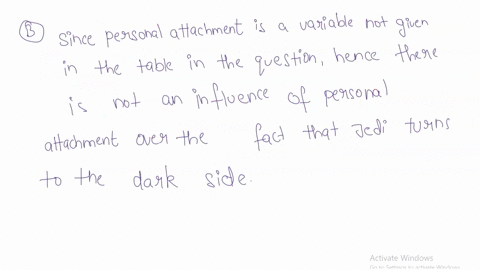 B Since personal attachment is a variable not given
in the table in the question, hence there
is not an influence of personal
attachment over the fact that Jedi turns
to the dark side.
Activate Windows